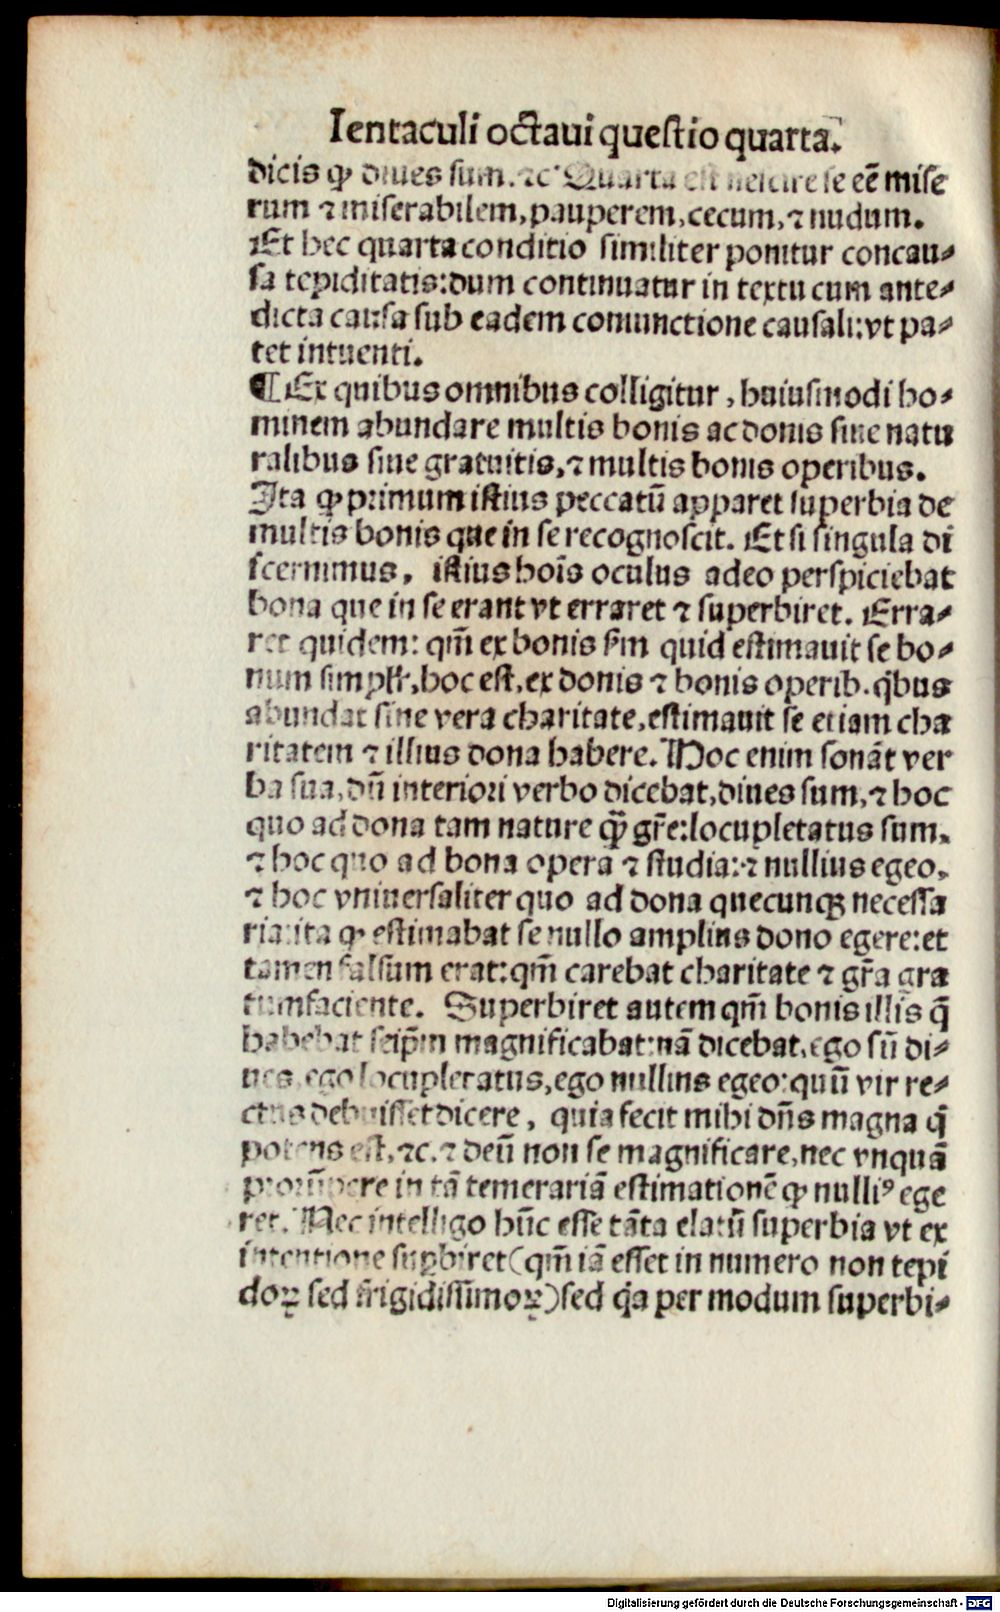 Ientaculi octaui questio quarta.
dicis ꝙ diues sum. ⁊cͨ Quarta est nescire se eē mise
rum ⁊ miserabilem, pauperem, cecum, ⁊ nudum.
Et hec quarta conditio similiter ponitur concau⸗
sa tepiditatis: dum continuatur in textu cum ante⸗
dicta causa sub eadem coniunctione causali: vt pa⸗
tet intuenti.
¶ Ex quibus omnibus colligitur, huiusmodi ho⸗
minem abundare multis bonis ac donis siue natu
ralibus siue gratuitis, ⁊ multis bonis operibus.
Ita ꝙ primum istius peccatū apparet superbia de
multis bonis que in se recognoscit. Et si singula di
scernimus, istius hoīs oculus adeo perspiciebat
bona que in se erant vt erraret ⁊ superbiret. Erra⸗
ret quidem: qm̄ ex bonis s̄m quid estimauit se bo⸗
num simplr̄, hoc est, ex donis ⁊ bonis operib. q̇bus
abundat sine vera charitate, estimauit se etiam cha
ritatem ⁊ illius dona habere. Hoc enim sonāt ver
ba sua, dū interiori verbo dicebat, diues sum, ⁊ hoc
quo ad dona tam nature ꝙ̄ gr̄e: locupletatus sum,
⁊ hoc quo ad bona opera ⁊ studia: ⁊ nullius egeo,
⁊ hoc vniuersaliter quo ad dona quecunqꝫ necessa
ria: ita ꝙ estimabat se nullo amplius dono egere: et
tamen falsum erat: qm̄ carebat charitate ⁊ gr̄a gra
tumfaciente. Superbiret autem qm̄ bonis illis q̄
habebat seip̄m magnificabat: nā dicebat, ego sū di⸗
ues, ego locupletatus, ego nullius egeo: quū vir re⸗
ctus debuisset dicere, quia fecit mihi dn̄s magna q̄
potens est, ⁊c. ⁊ deū non se magnificare, nec vnquā
prorūpere in tā temerariā estimationē ꝙ nulliꝰ ege
ret. Nec intelligo hūc esse tāta elatū superbia vt ex
intentione suꝑbiret (qm̄ iā esset in numero non tepi
doꝝ sed frigidissimoꝝ) sed q̇a per modum superbi⸗
Digitalisierung gefördert durch die Deutsche Forschungsgemeinschaft - DFG